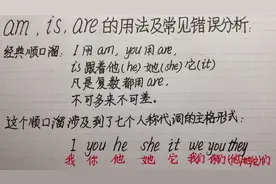 am, is, are 的用法及常见错误分析:
经典顺口溜: I 用 am, you 用 are,
is 跟着他(he)她(she)它(it)
凡是复数都用 are,
不可多来不可差。
这个顺口溜涉及到了七个人称代词的主格形式:
I you he she it we you they
我 你 他 她 它 我们 你们 (他/她/它)们